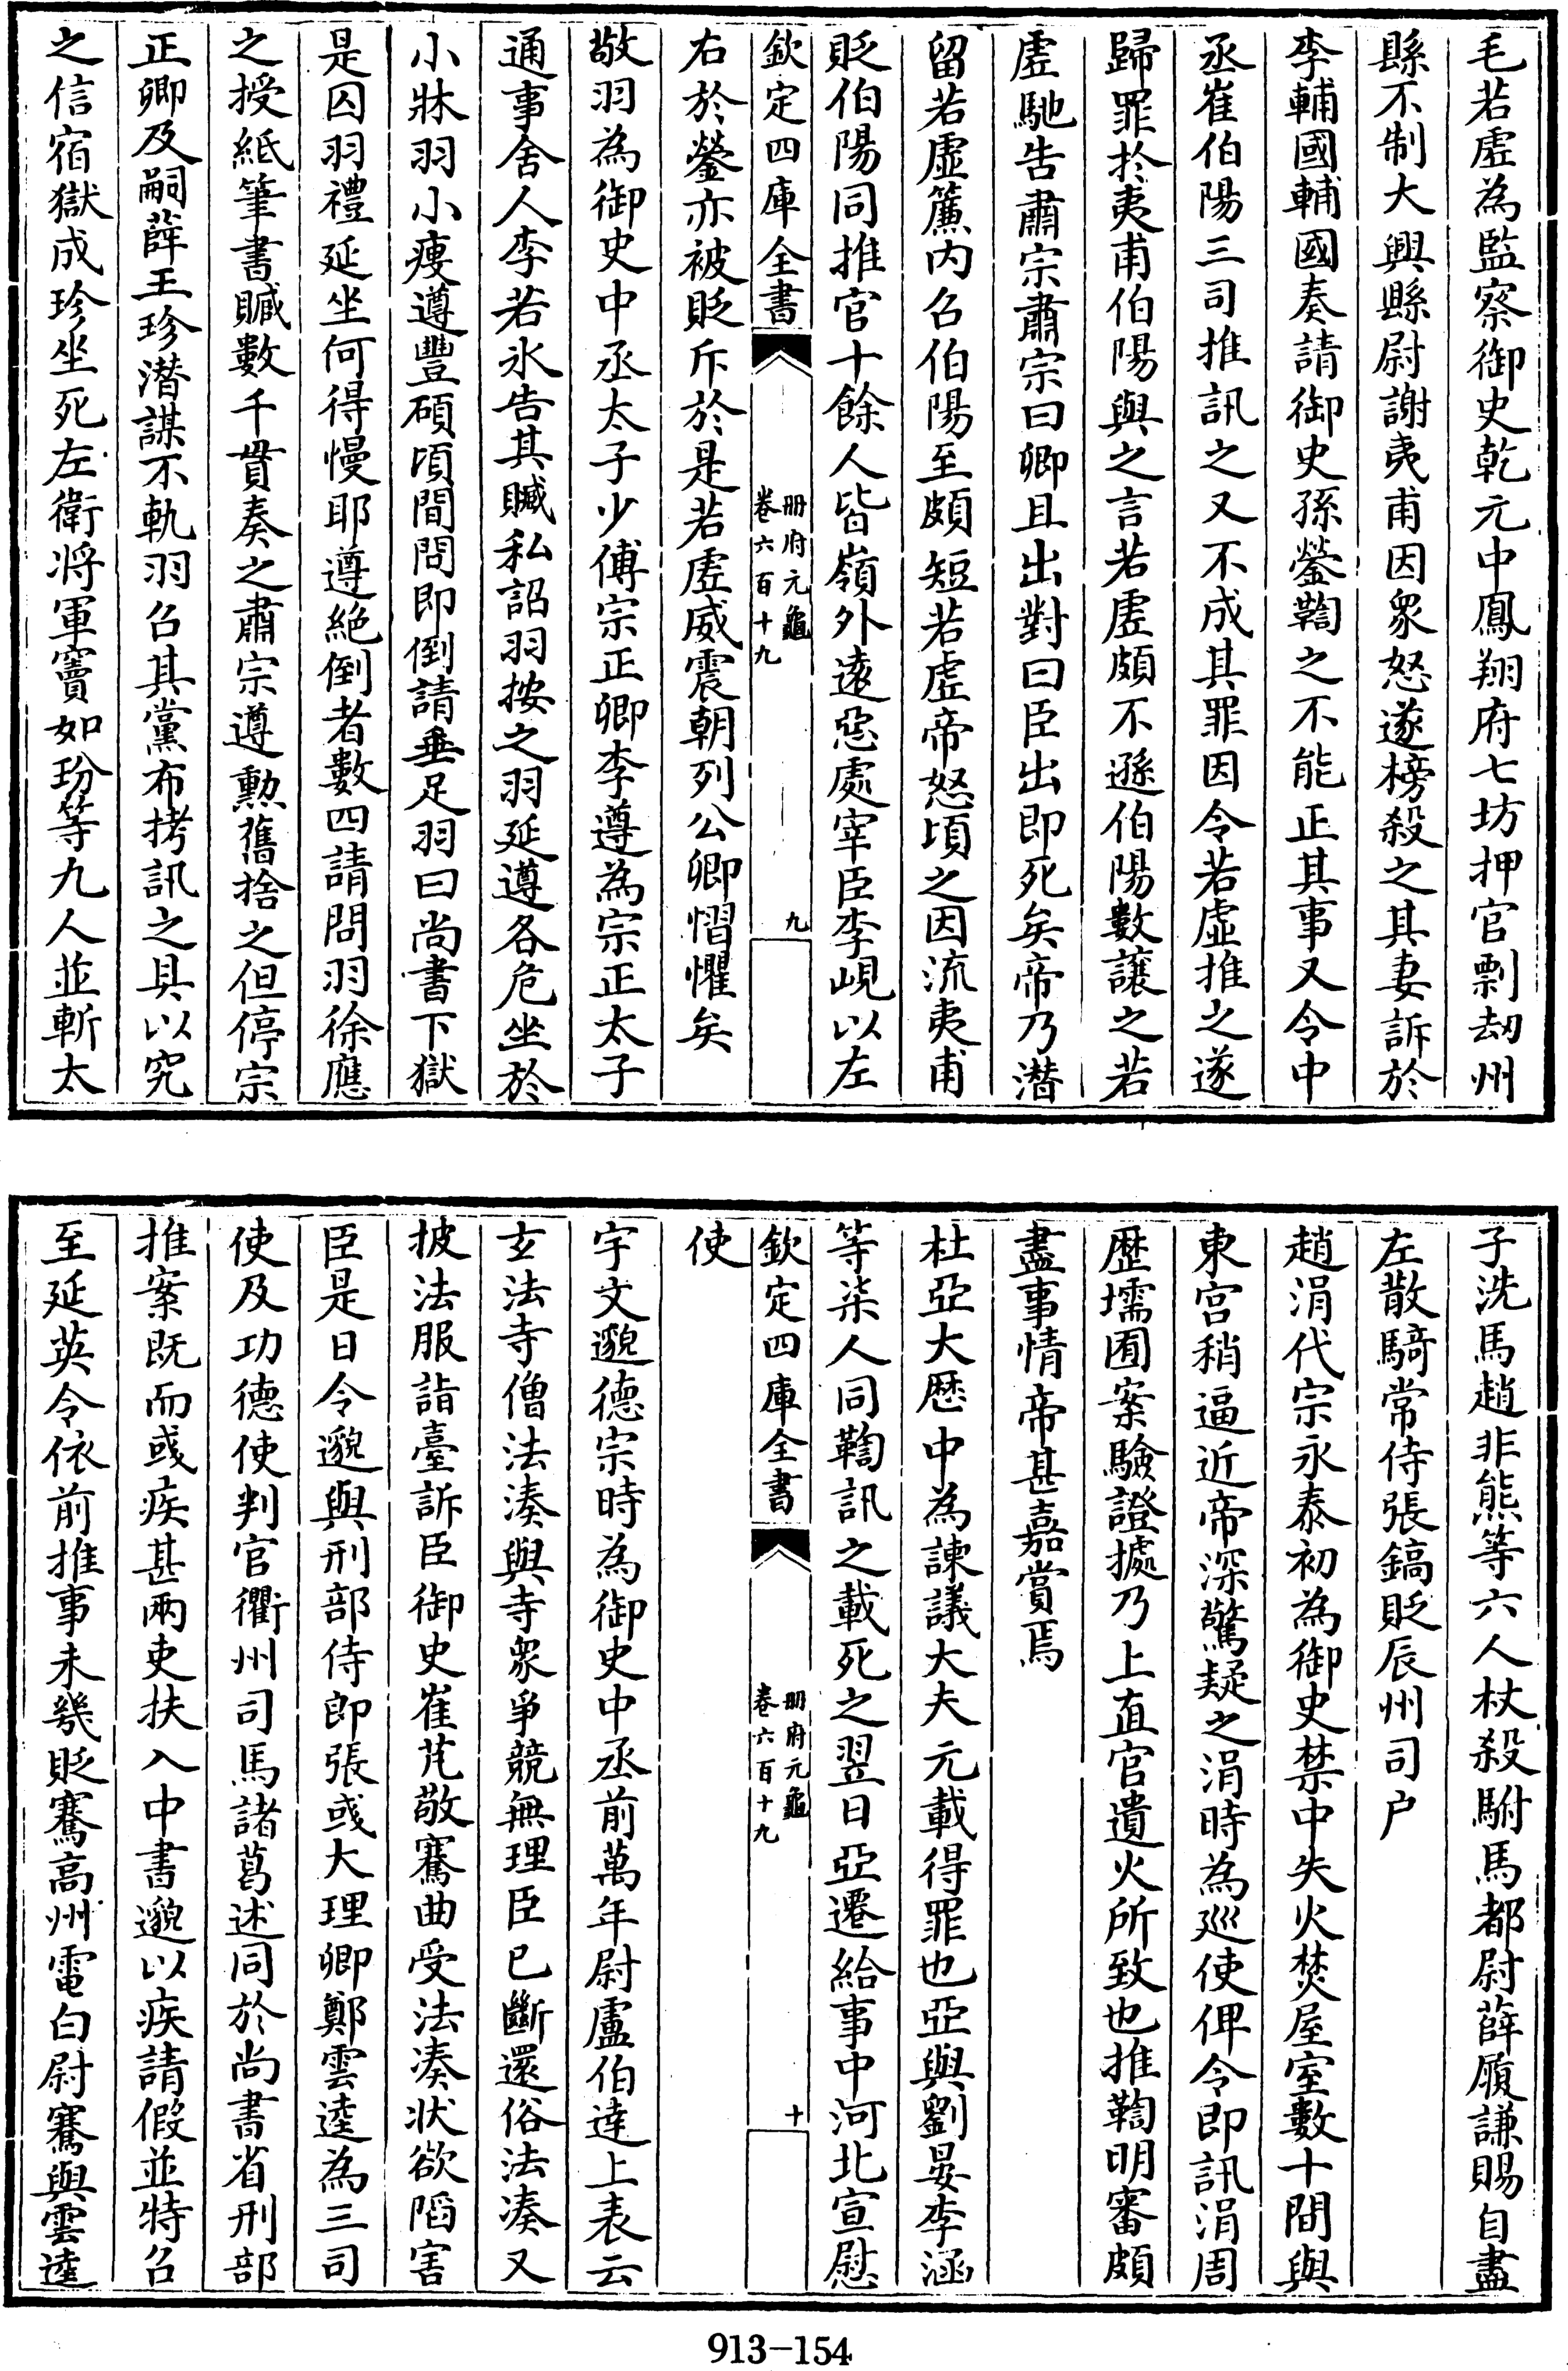 毛若虛為監察御史乾元中鳳翔府七坊押官剽刼州
縣不制大興縣尉謝夷甫因衆怒遂榜殺之其妻訴於
李輔國輔國奏請御史孫鎣鞫之不能正其事又令中
丞崔伯陽三司推訊之又不成其罪因令若虛推之遂
歸罪於夷甫伯陽與之言若虛頗不遜伯陽數讓之若
虛馳告肅宗肅宗曰卿且出對曰臣出即死矣帝乃潜
留若虛簾内召伯陽至頗短若虛帝怒頃之因流夷甫
貶伯陽同推官十餘人皆嶺外遠惡處宰臣李峴以左
欽定四庫全書
册府元龜
卷六百十九
九
右於鎣亦被貶斥於是若虛威震朝列公卿慴懼矣
敬羽為御史中丞太子少傅宗正卿李遵為宗正太子
通事舍人李若氷告其贓私詔羽按之羽延遵各危坐於
小牀羽小瘦遵豐碩頃間問即倒請垂足羽曰尚書下獄
是囚羽禮延坐何得慢耶遵絶倒者數四請問羽徐應
之授紙筆書贓數千貫奏之肅宗遵勲舊捨之但停宗
正卿及嗣薛王珍潜謀不軌羽召其黨布拷訊之具以究
之信宿獄成珍坐死左衛將軍竇如玢等九人並斬太
子洗馬趙非熊等六人杖殺駙馬都尉薛履謙賜自盡
左散騎常侍張鎬貶辰州司户
趙涓代宗永泰初為御史禁中失火焚屋室數十間與
東宫稍逼近帝深驚疑之涓時為巡使俾令即訊涓周
歴壖囿案驗證據乃上直官遺火所致也推鞫明審頗
盡事情帝甚嘉賞焉
杜亞大歴中為諫議大夫元載得罪也亞與劉晏李涵
等柒人同鞫訊之載死之翌日亞遷給事中河北宣慰
欽定四庫全書
册府元龜
卷六百十九
十
使
宇文邈德宗時為御史中丞前萬年尉盧伯達上表云
玄法寺僧法湊與寺衆爭競無理臣已斷還俗法湊又
披法服詣臺訴臣御史崔芃敬騫曲受法湊状欲陷害
臣是日令邈與刑部侍郎張彧大理卿鄭雲逵為三司
使及功德使判官衢州司馬諸葛述同於尚書省刑部
推案既而彧疾甚兩吏扶入中書邈以疾請假並特召
至延英令依前推事未幾貶騫高州電白尉騫與雲逵
913-154